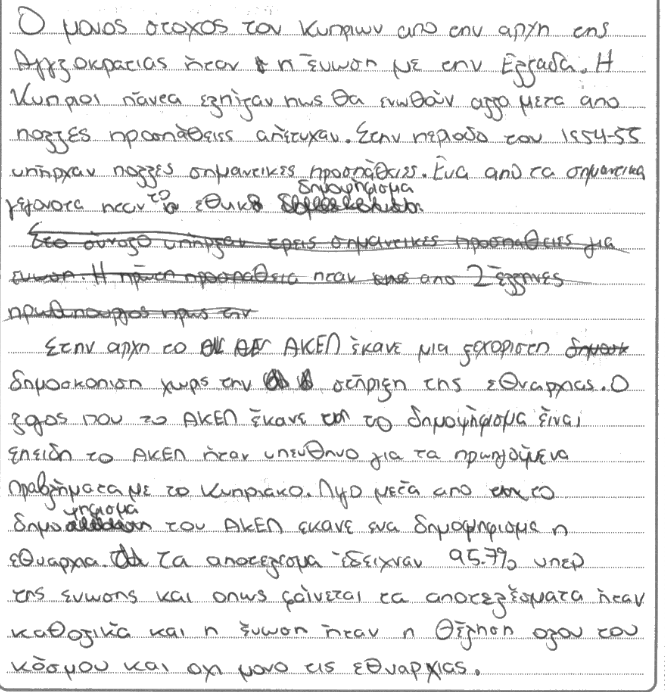 Ο μονος στοχος του Κυπριων απο την αρχη της
Αγγλοκρατιας ήταν η Ένωση με την Ελλαδα. Η
Κυπροι πάντα ελπιζαν πως θα ενωθούν αλλα μετα απο
πολλές προσπάθειες απέτυχαν. Στην περιοδο του 1954-55
υπήρχαν πολλές σημαντικές προσπάθειες. Ένα από τα σημαντικα
γεγονοτα ηταν το εθνικο δημοψήφισμα
Στο σύνολο υπήρχαν τρεις σημαντικές προσπαθειες για
ενωση. Η πρωτη προσπαθεια ηταν απο 2 έλληνες
πρωθυπουργος προς την
Στην αρχη το ΑΚΕΛ έκανε μια ξεχοριστη
δημοσκοπιση χωρις την στήριξη της εθναρχιας. Ο
λογος που το ΑΚΕΛ έκανε το δημοψήφισμα είναι
επειδη το ΑΚΕΛ ήταν υπευθηνο για τα προηγούμενα
προβλήματα με το Κυπριακο. Λιγο μετά απο το
δημοψηφισμα του ΑΚΕΛ εκανε ενα δημοψηφισμα η
εθναρχια. Τα αποτελεσμα έδειχναν 95.7% υπερ
της ενωσης και οπως φαίνεται τα αποτελέσματα ήταν
καθολικά και η ένωση ήταν η θέληση ολου του
κόσμου και οχι μονο τις εθναρχιας.